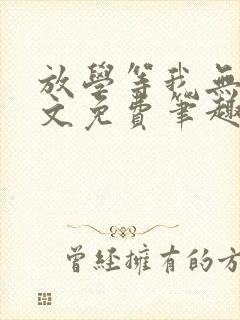 放學等我無
文免費筆趣
曾經擁有的方